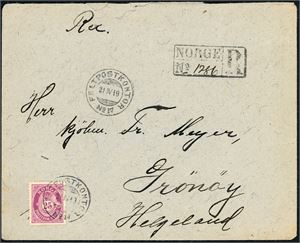 Rec.
NORGE R
No 1286
FELTPOSTKONTOR
21 IV 19
Herr
kjøbm. Fr. Meyer,
Grönöy
Helgeland
POSTKONTOR